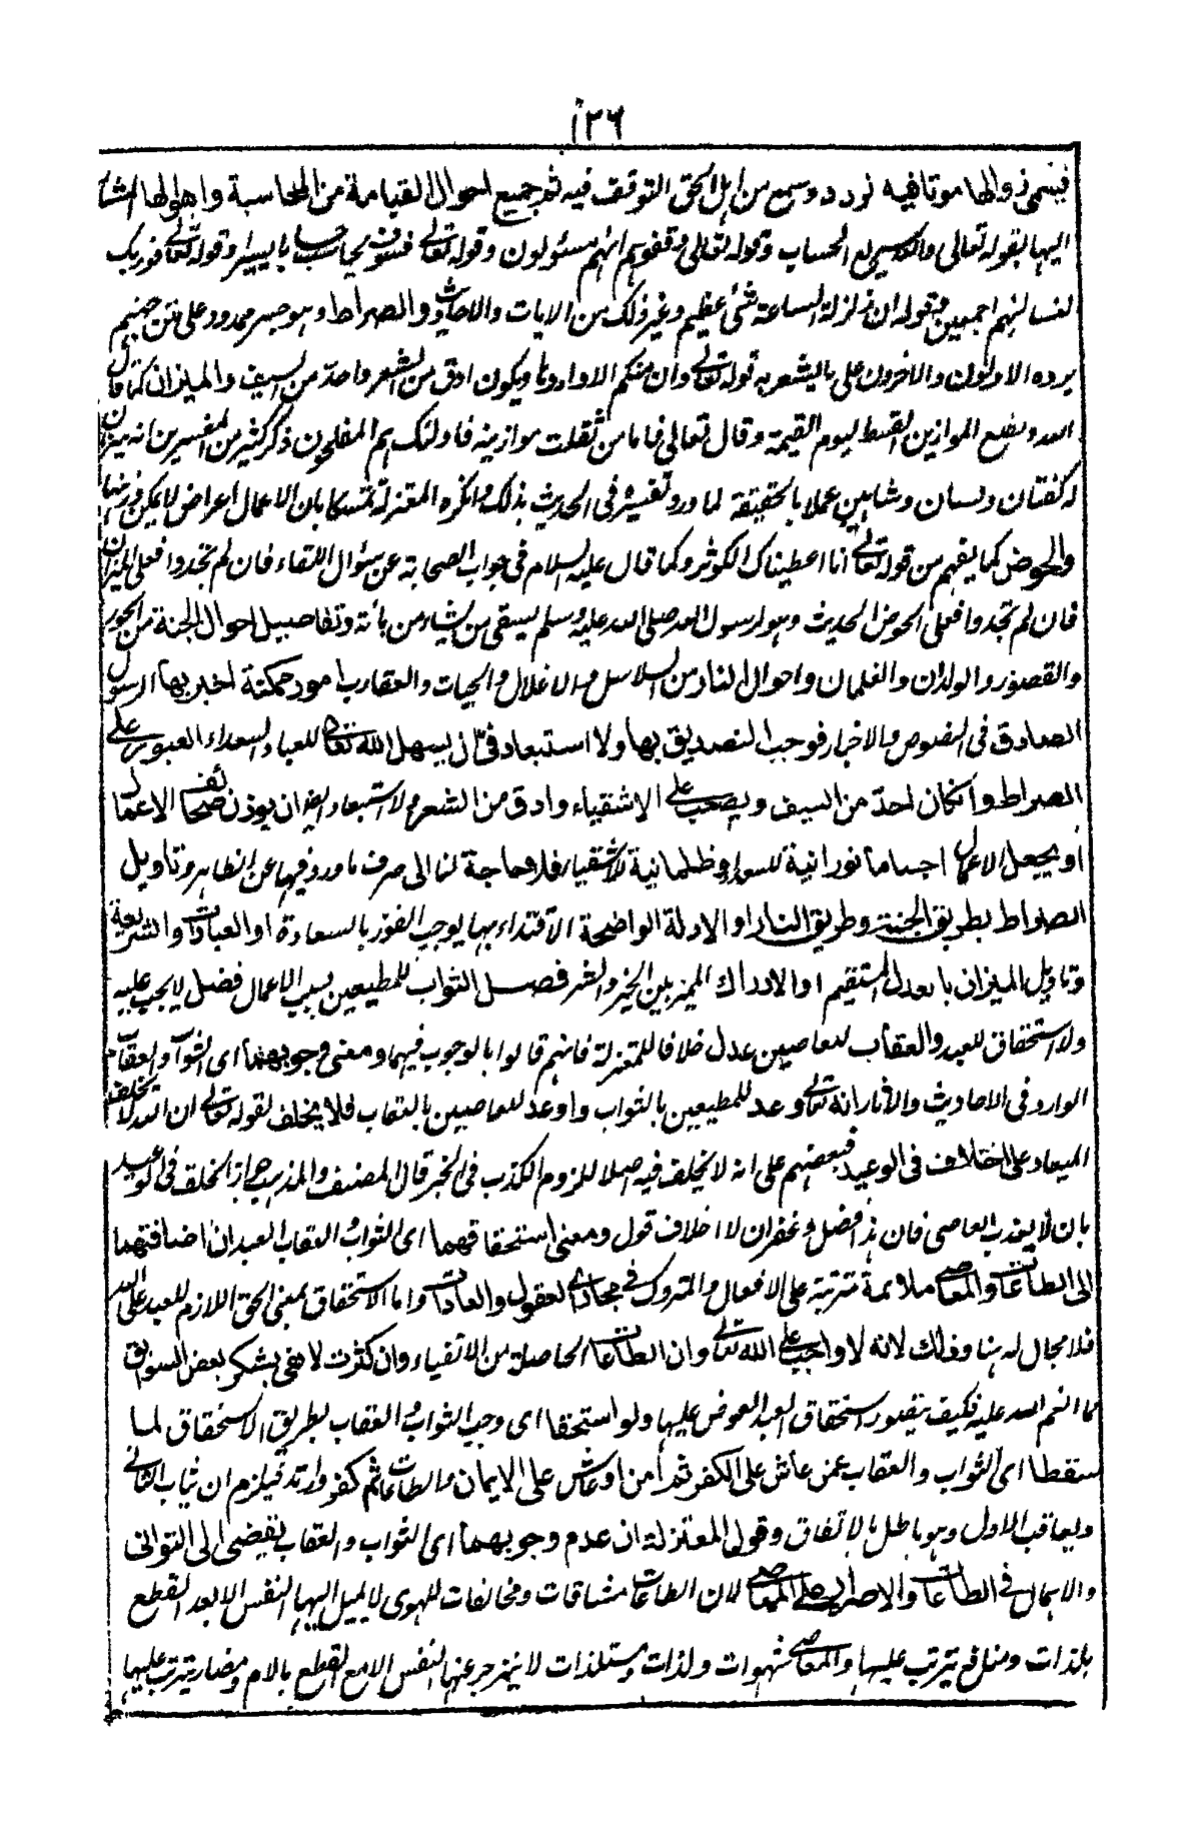 ١٣٦
فيسمى زوالها موتا فيه تردد وسمع من اهل الحق التوقف فيه ثم جميع احوال القيامة من المحاسبة واهوالها المشار
اليها بقوله تعالى والله سريع الحساب وقوله تعالى وقفوهم انهم مسئولون وقوله تعالى فسوف يحاسب حسابا يسيرا وقوله تعالى فوربك
لنسالنهم اجمعين وقوله ان زلزلة الساعة شئ عظيم وغير ذلك من الايات والاحاديث والصراط وهو جسر ممدود على متن جهنم
يرده الاولون والاخرون على ما يشعر به قوله تعالى وان منكم الا واردها ويكون ادق من الشعر واحد من السيف والميزان كما قال
الله ونضع الموازين القسط ليوم القيمة وقال تعالى فاما من ثقلت موازينه فاولئك هم المفلحون ذكر كثير من المفسرين انه ميزان
له كفتان ولسان وشاهين عملا بالحقيقة لما ورد تفسيره في الحديث بذلك وانكره المعتزلة تمسكا بان الاعمال اعراض لا يمكن وزنها
والحوض كما يفهم من قوله تعالى انا اعطيناك الكوثر وكما قال عليه السلام في جواب الصحابة عن سؤال اللقاء فان لم تجدوا فعلى الميزان
فان لم تجدوا فعلى الحوض الحديث وهو لرسول الله صلى الله عليه وسلم يسقى من يشاء من مائه وتفاصيل احوال الجنة من الحور
والقصور والولدان والغلمان واحوال النار من السلاسل والاغلال والحيات والعقارب امور ممكنة اخبر بها الرسول
الصادق في النصوص والاخبار فوجب التصديق بها ولا استبعاد في ان يسهل الله تعالى للعباد السعداء العبور على
الصراط وان كان احد من السيف ويصعب على الاشقياء وادق من الشعر ولا استبعاد ايضا ان يوزن صحائف الاعمال
او يجعل الاعمال اجساما نورانية للسعداء وظلمانية للاشقياء فلا حاجة لنا الى صرف ما ورد فيها عن الظاهر وتاويل
الصراط بطريق الجنة وطريق النار او الادلة الواضحة الاقتداء بها يوجب الفوز بالسعادة او العبادات والشريعة
وتاويل الميزان بالعدل المستقيم او الادراك المميز بين الخير والشر فصل الثواب للمطيعين بسبب الاعمال فضل لا يجب عليه
ولا استحقاق للعبد والعقاب للعاصين عدل خلافا للمعتزلة فانهم قالوا بالوجوب فيهما ومعنى وجوبهما اى الثواب والعقاب
الوارد في الاحاديث والآثار انه تعالى وعد للمطيعين بالثواب واوعد للعاصين بالعقاب فلا يخلف لقوله تعالى ان الله لا يخلف
الميعاد على اختلاف في الوعيد فبعضهم على انه لا يخلف فيه اصلا للزوم الكذب في الخبر قال المصنف والمذهب جواز الخلف في الوعيد
بان لا يعذب العاصى فان هذا فضل وغفران لا اخلاف قول ومعنى استحقاقهما اى الثواب والعقاب العبد ان اضافتهما
الى الطاعات والمعاصى ملائمة مترتبة على الافعال والمتروك في مجارى العقول والعادات واما الاستحقاق بمعنى الحق اللازم للعبد على الله
فلا مجال له هنا وذلك لانه لا واجب على الله تعالى وان الطاعات الحاصلة من الاتقياء وان كثرت لا تفى بشكر بعض السوابق
مما انعم الله عليه فكيف يتصور استحقاق العبد العوض عليها ولو استحقا اى وجب الثواب والعقاب بطريق الاستحقاق لما
سقطا اى الثواب والعقاب عمن عاش على الكفر ثم امن او عاش على الايمان والطاعات ثم كفر وارتد فيلزم ان يثاب الثانى
ويعاقب الاول وهو باطل بالاتفاق وقول المعتزلة ان عدم وجوبهما اى الثواب والعقاب يفضى الى التوانى
والاهمال في الطاعات والاصرار على المعاصى لان الطاعات مشاقات ومخالفات للهوى لا يميل اليها النفس الا بعد القطع
بلذات ومنافع يترتب عليها والمعاصى شهوات ولذات ومستلذات لا ينزجر عنها النفس الا مع القطع بالام ومضار يترتب عليها